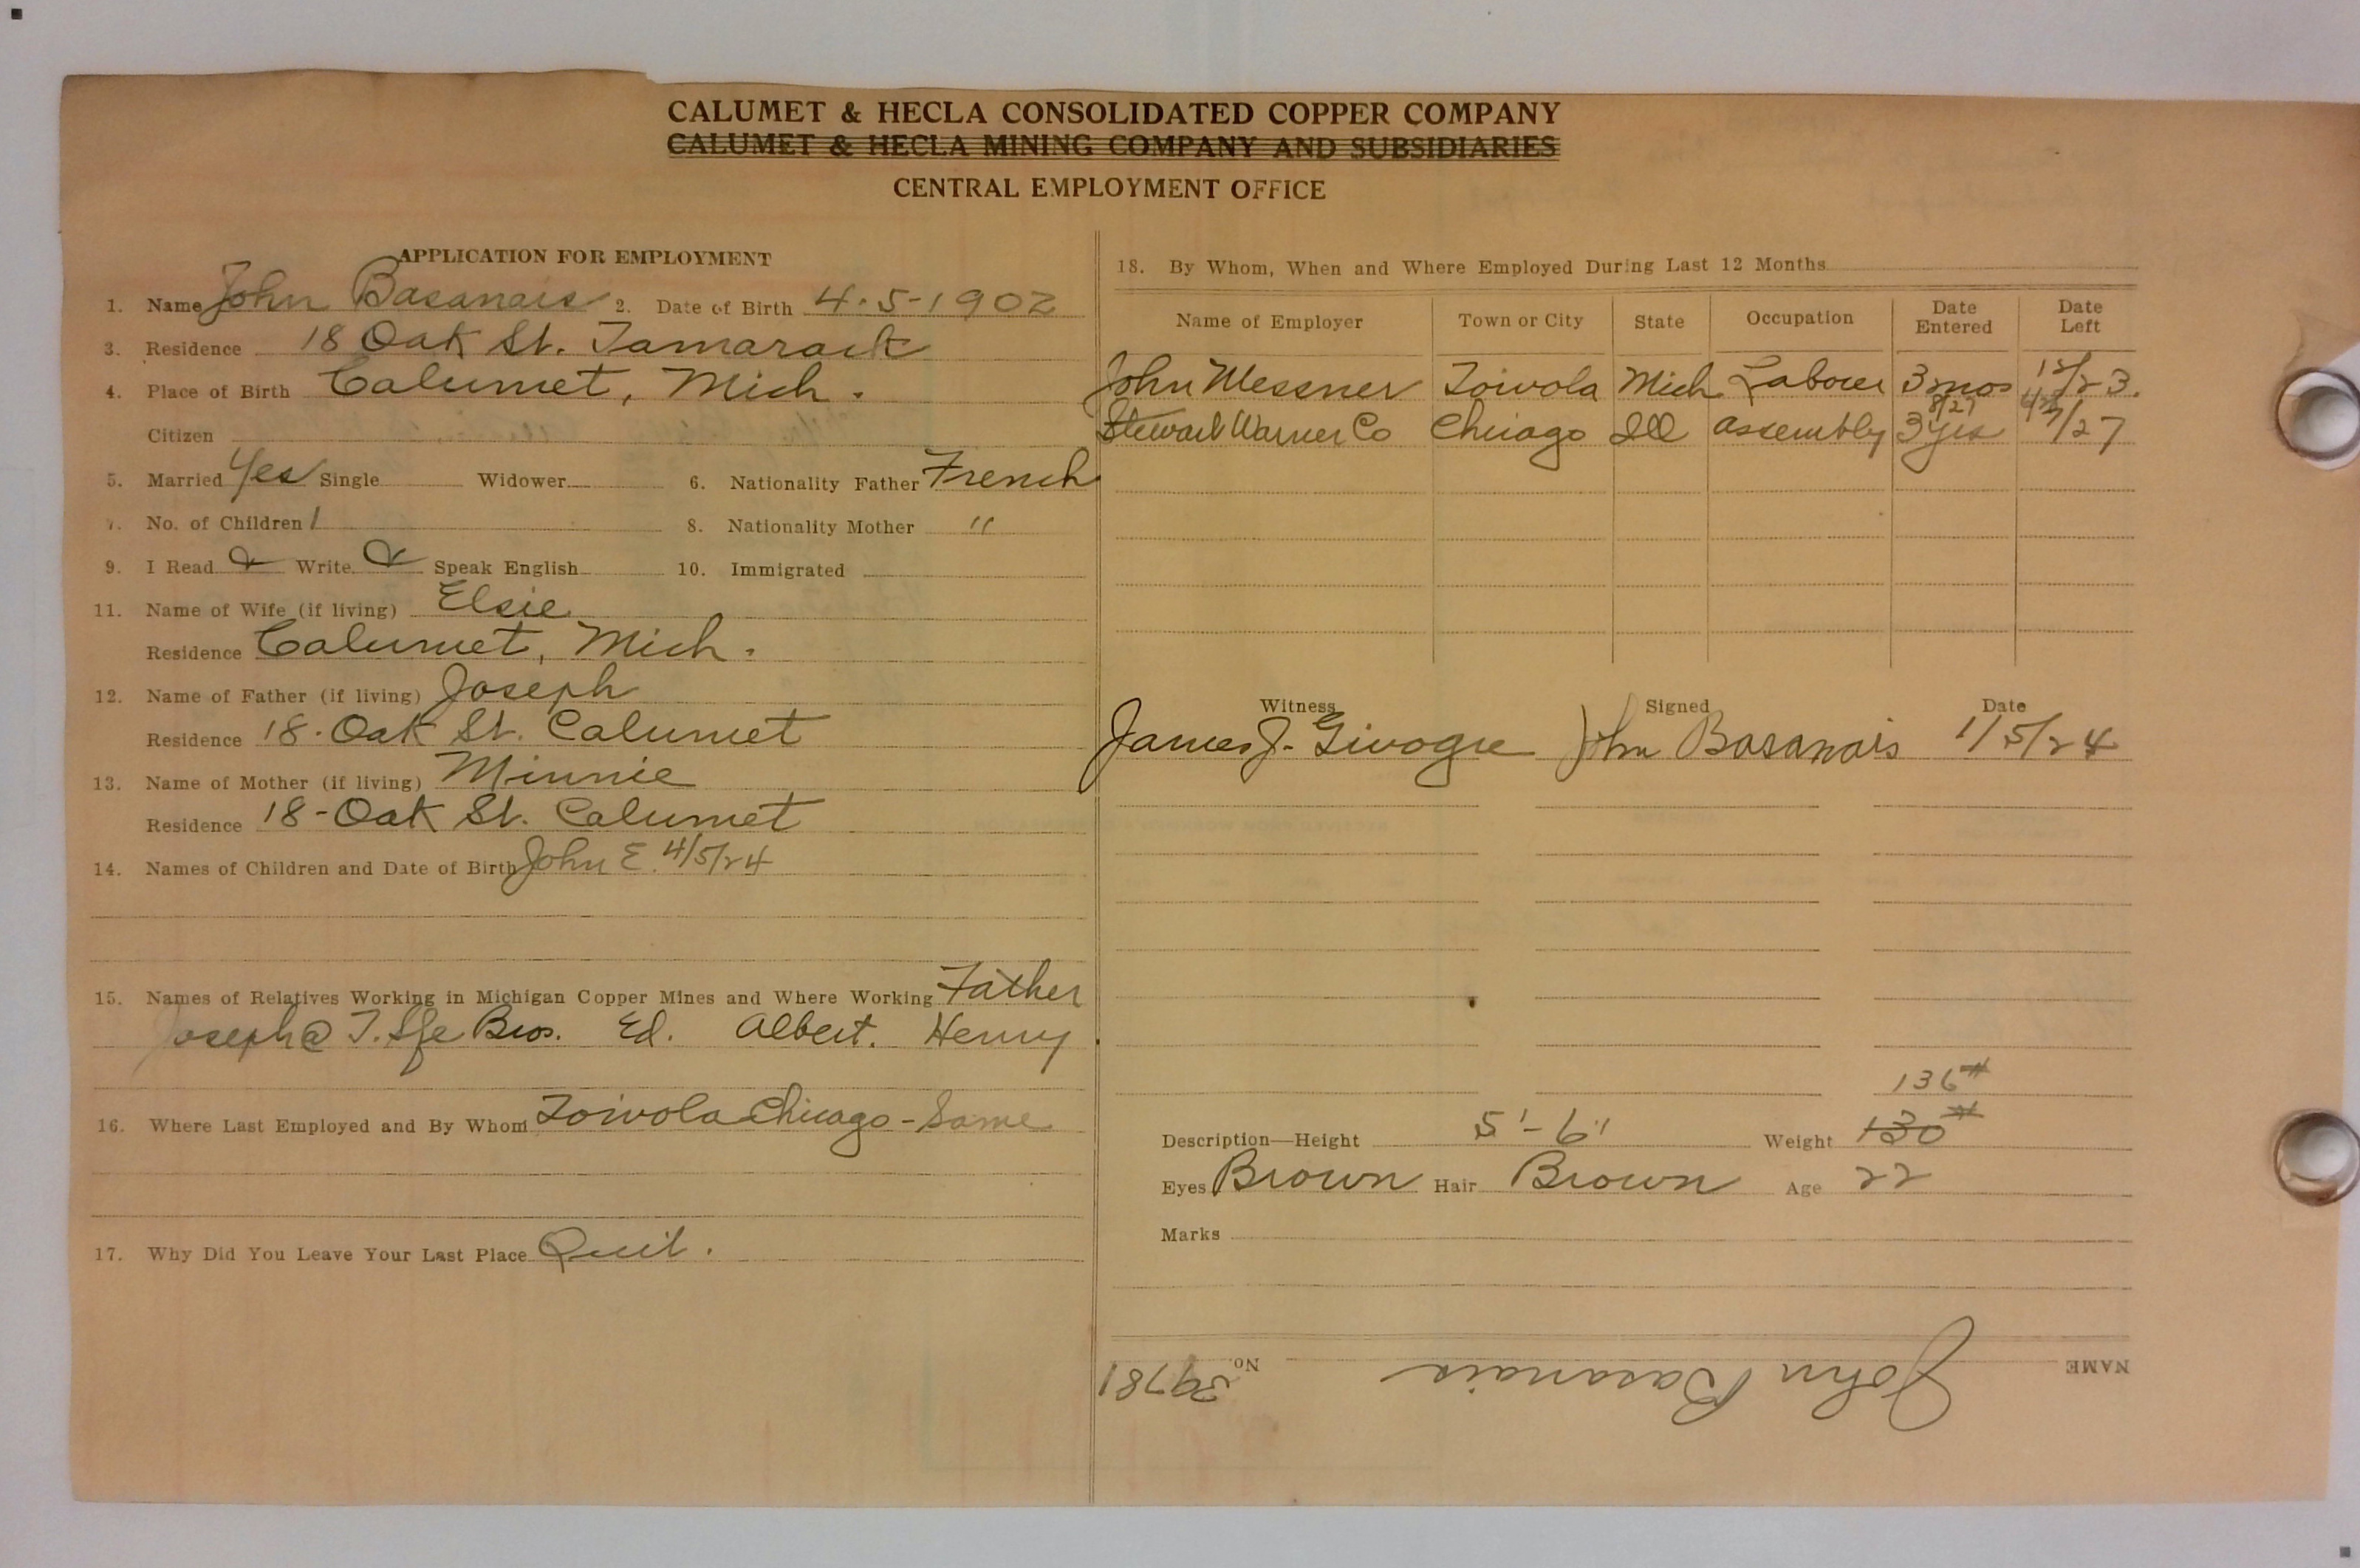 CALUMET & HECLA CONSOLIDATED COPPER COMPANY
CALUMET & HECLA MINING COMPANY AND SUBSIDIARIES
CENTRAL EMPLOYMENT OFFICE
APPLICATION FOR EMPLOYMENT
1. Name John Basanais 2. Date of Birth 4-5-1902
3. Residence 18 Oak St. Tamarack
4. Place of Birth Calumet, Mich.
Citizen
5. Married Yes Single Widower 6. Nationality Father French
7. No. of Children 1 8. Nationality Mother "
9. I Read & Write & Speak English 10. Immigrated
11. Name of Wife (if living) Elsie
Residence Calumet, Mich.
12. Name of Father (if living) Joseph
Residence 18-Oak St. Calumet
13. Name of Mother (if living) Minnie
Residence 18-Oak St. Calumet
14. Names of Children and Date of Birth John E. 4/5/24
15. Names of Relatives Working in Michigan Copper Mines and Where Working Father
Joseph @ Bros. Ed. Albert. Henry
16. Where Last Employed and By Whom Toivola Chicago - Same
17. Why Did You Leave Your Last Place Quit.
18. By Whom, When and Where Employed During Last 12 Months
Name of Employer Town or City State Occupation Date Entered Date Left
John Messner Toivola Mich Labour 3 mos 12/23.
Stewart Warner Co Chicago Ill assembly 3 yrs 8/27 /27
Witness Signed Date
James J. Givogre John Basanais 1/5/24
136#
Description—Height 5'-6" Weight 130#
Eyes Brown Hair Brown Age 22
Marks
NAME John Basanais No. 39781